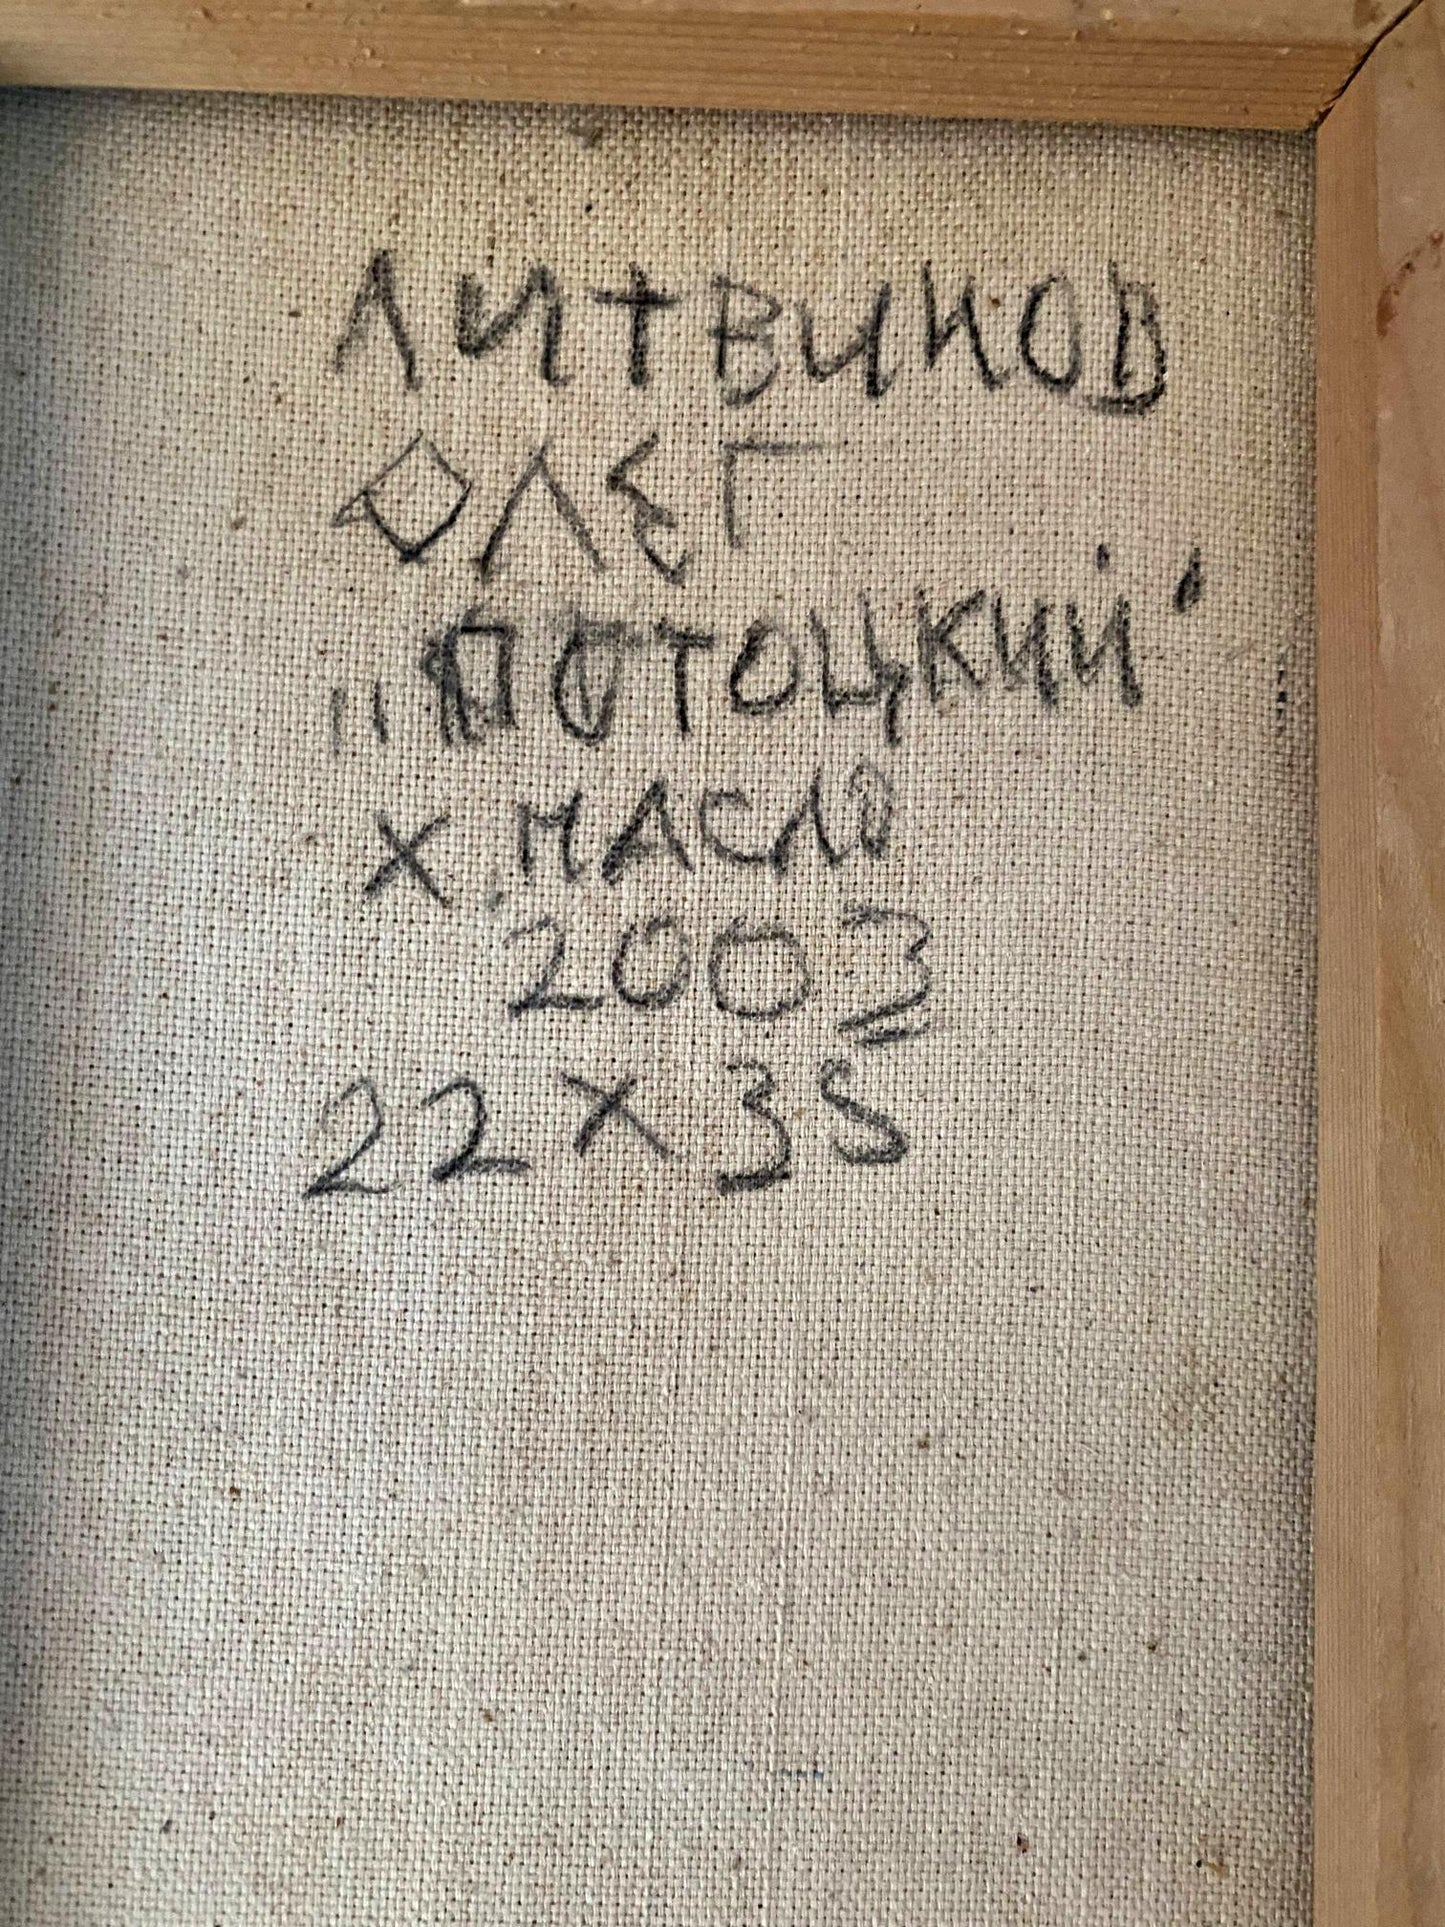 ЛИТВИНОВ
ОЛЕГ
"ПОТОЦКИЙ"
Х. МАСЛО
2003
22 X 35